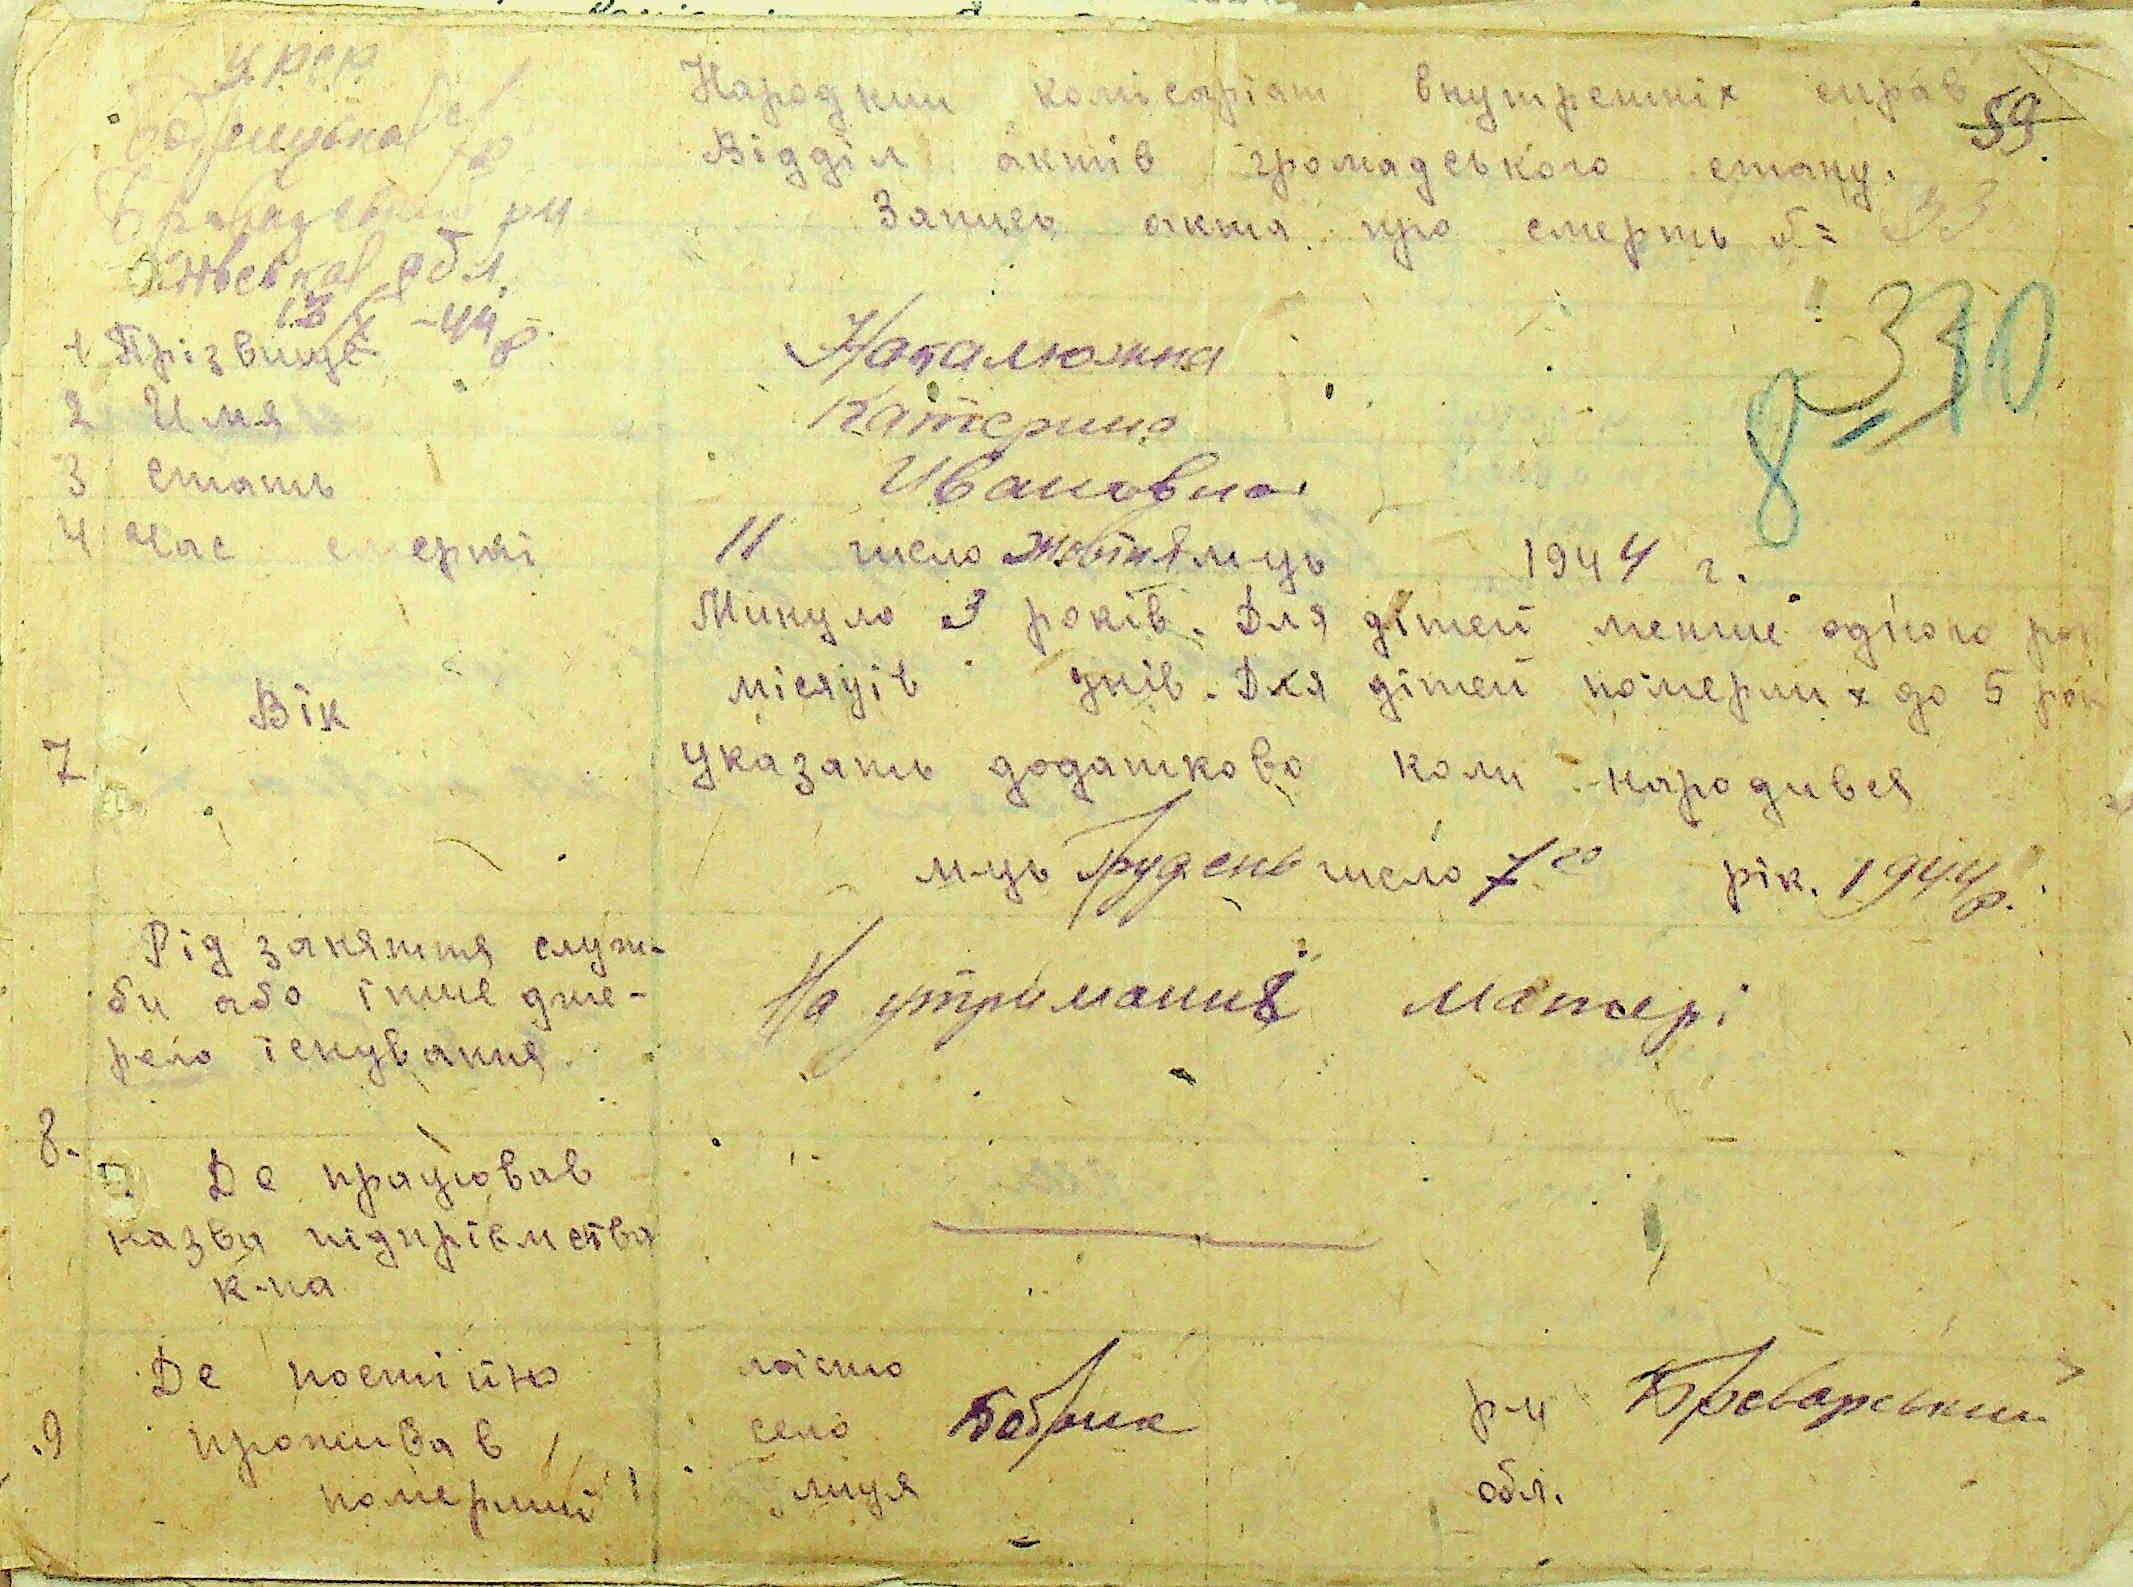 УРСР
Народкии комісаріят внутрешніх справ
59
Відділ актів громадського стану.
Запись акта про смерть № 33
обл.
13/X -44 р.
330
8
1 Прізвище
Катерина
2 Имя
Ивановна
3 Стать
4 Час смерті 11 число жовтня м-ць 1944 г.
Минуло 3 років. Для дітей менше одного рок
Вік місяців днів. Для дітей померших до 5 рок
7 указать додатково коли народився
м-ць Грудень число 7го рік. 1944 р.
Рід заняття служ-
би або інше дже-
рело існування
На утриманні матері
8. Де працював
назва підприємства
к-па
Де постійно місто
.9 проживав село Бобрик р-н Броварський
померший улиця обл.